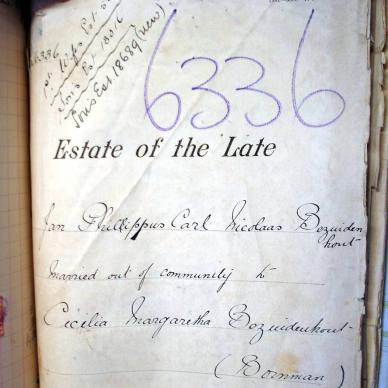 6336
Wife's Est
Son's Est 18689 (new)
6336
Estate of the Late
Jan Phillippus Carl Nicolaas Bezuiden
hout
Married out of community to
Cecilia Margaretha Bezuidenhout
(Bornman)